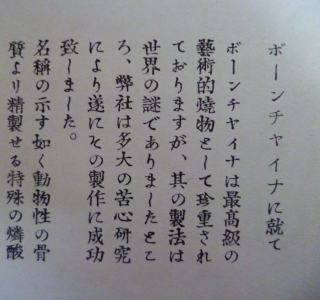 ボーンチャイナに就て
ボーンチャイナは最高級の
藝術的燒物として珍重され
ておりますが、其の製法は
世界の謎でありましたとこ
ろ、弊社は多大の苦心研究
により遂にその製作に成功
致しました。
名稱の示す如く動物性の骨
質より精製せる特殊の燐酸